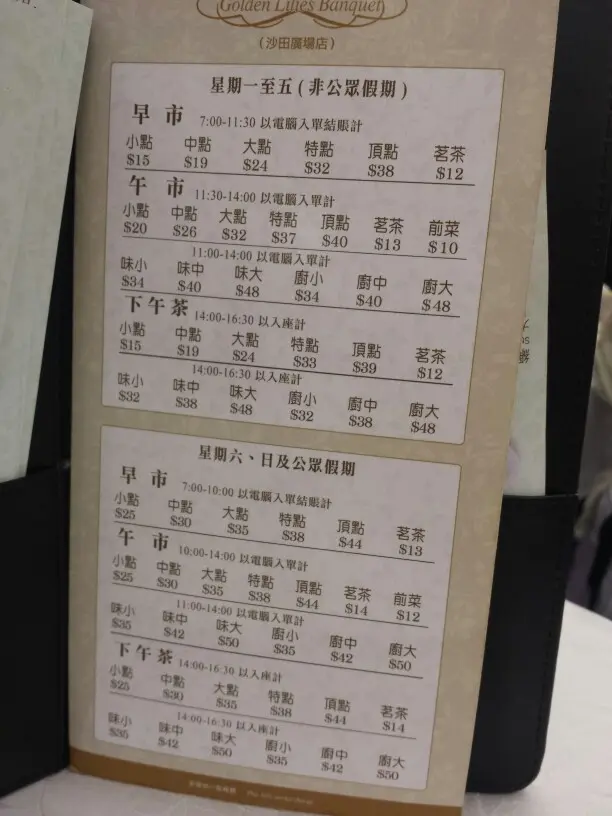 Golden Lilies Banquet
(沙田廣場店)
星期一至五 ( 非公眾假期 )
早 市 7:00-11:30 以電腦入單結賬計
小點 中點 大點 特點 頂點 茗茶
$15 $19 $24 $32 $38 $12
午 市 11:30-14:00 以電腦入單計
小點 中點 大點 特點 頂點 茗茶 前菜
$20 $26 $32 $37 $40 $13 $10
11:00-14:00 以電腦入單計
味小 味中 味大 廚小 廚中 廚大
$34 $40 $48 $34 $40 $48
下午茶 14:00-16:30 以入座計
小點 中點 大點 特點 頂點 茗茶
$15 $19 $24 $33 $39 $12
14:00-16:30 以入座計
味小 味中 味大 廚小 廚中 廚大
$32 $38 $48 $32 $38 $48
星期六、日及公眾假期
早 市 7:00-10:00 以電腦入單結賬計
小點 中點 大點 特點 頂點 茗茶
$25 $30 $35 $38 $44 $13
午 市 10:00-14:00 以電腦入單計
小點 中點 大點 特點 頂點 茗茶 前菜
$25 $30 $35 $38 $44 $14 $12
11:00-14:00 以電腦入單計
味小 味中 味大 廚小 廚中 廚大
$35 $42 $50 $35 $42 $50
下午茶 14:00-16:30 以入座計
小點 中點 大點 特點 頂點 茗茶
$25 $30 $35 $38 $44 $14
14:00-16:30 以入座計
味小 味中 味大 廚小 廚中 廚大
$35 $42 $50 $35 $42 $50